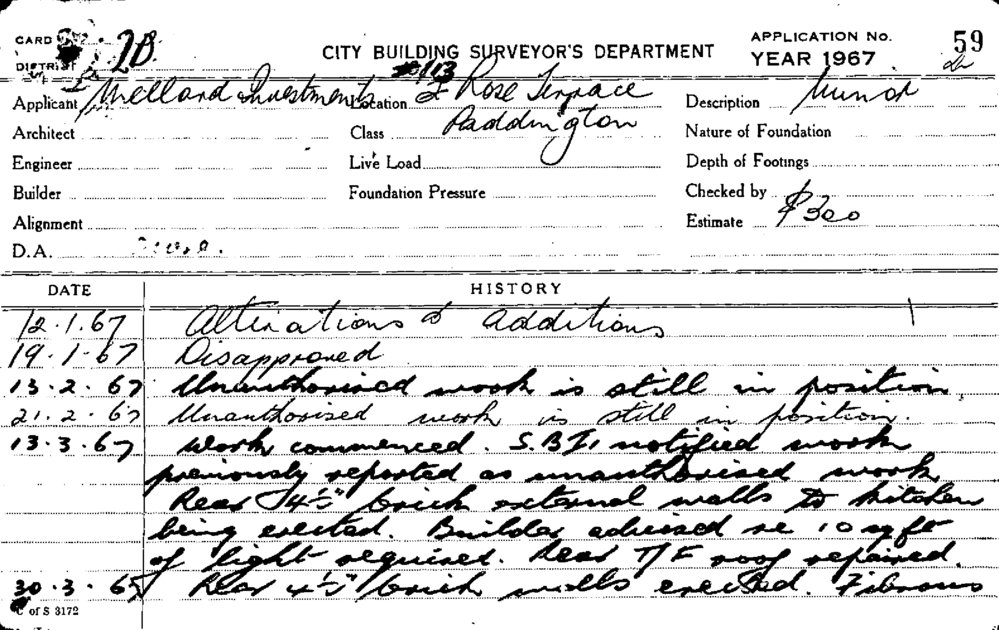 CARD
DISTRICT 2B.
CITY BUILDING SURVEYOR'S DEPARTMENT
APPLICATION No. 59
YEAR 1967
Applicant Melland Investments Location 2 Rose Terrace Description Minor
Architect Class Paddington Nature of Foundation
Engineer Live Load Depth of Footings
Builder Foundation Pressure Checked by
Alignment Estimate $300
D.A.
DATE HISTORY
12.1.67 Alterations & additions
19.1.67 Disapproved
13.2.67 Unauthorised work is still in position.
21.2.67 Unauthorised work is still in position.
13.3.67 Work commenced. S.B.I. notified work
previously reported as unauthorised work
Rear 4½" brick external walls to kitchen
being erected. Builder advised re 10 sq ft
of light required. Rear T/F roof repaired.
30.3.67 Rear 4½" brick walls erected. Fibrous
C of S 3172